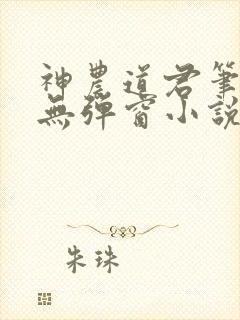 神農道君筆
無彈窗小說
朱珠